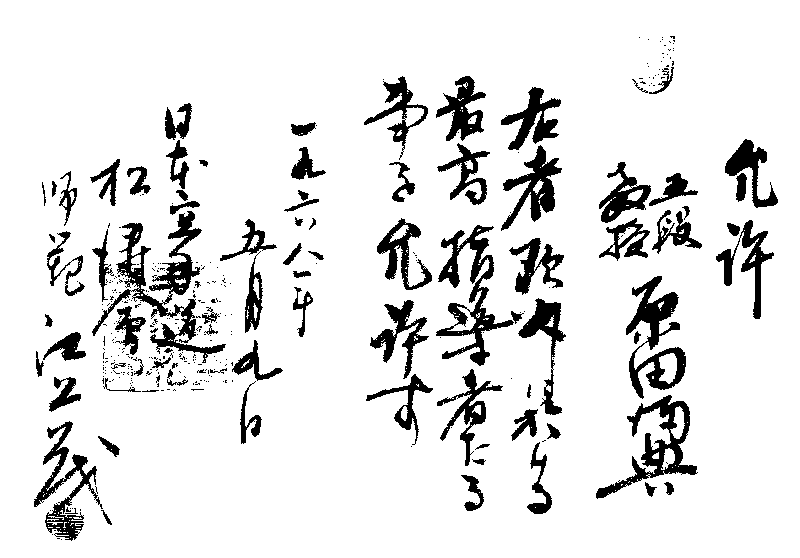 允許
五段
教授
原田満典
右者欧州於ける
最高指導者たる
事を允許す
一九六八年
五月九日
日本空手道
松濤會
師範 江上茂